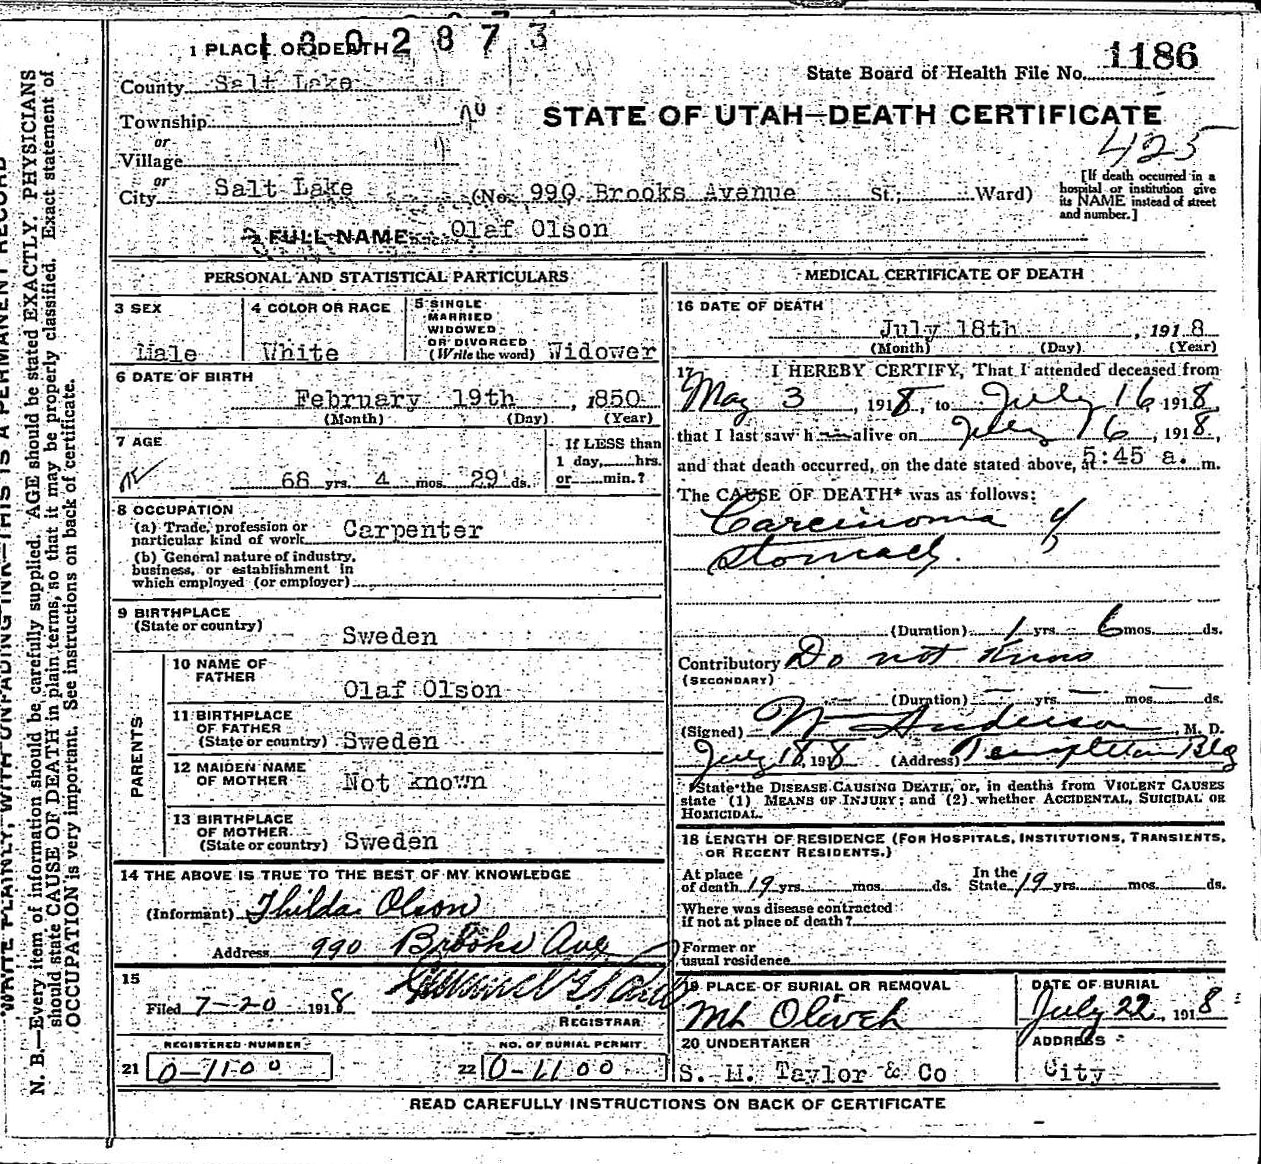 1302873
1 PLACE OF DEATH
State Board of Health File No. 1186
County Salt Lake
STATE OF UTAH—DEATH CERTIFICATE
Township
or
Village
425
or
City Salt Lake (No. 990 Brooks Avenue St.; Ward)
[If death occurred in a
hospital or institution give
its NAME instead of street
and number.]
2 FULL NAME Olaf Olson
PERSONAL AND STATISTICAL PARTICULARS
3 SEX
Male
4 COLOR OR RACE
White
5 SINGLE
MARRIED
WIDOWED
OR DIVORCED
(Write the word) Widower
6 DATE OF BIRTH
February 19th, 1850
(Month) (Day) (Year)
7 AGE
68 yrs. 4 mos. 29 ds.
If LESS than
1 day, hrs.
or min.?
8 OCCUPATION
(a) Trade, profession or
particular kind of work Carpenter
(b) General nature of industry,
business, or establishment in
which employed (or employer)
9 BIRTHPLACE
(State or country)
Sweden
PARENTS
10 NAME OF
FATHER
Olaf Olson
11 BIRTHPLACE
OF FATHER
(State or country) Sweden
12 MAIDEN NAME
OF MOTHER Not known
13 BIRTHPLACE
OF MOTHER
(State or country) Sweden
14 THE ABOVE IS TRUE TO THE BEST OF MY KNOWLEDGE
(Informant) Thilda Olson
Address 990 Brooks Ave
15
Filed 7-20 1918
REGISTRAR
REGISTERED NUMBER
21 0-1100
NO. OF BURIAL PERMIT
22 0-1100
MEDICAL CERTIFICATE OF DEATH
16 DATE OF DEATH
July 18th, 1918
(Month) (Day) (Year)
17 I HEREBY CERTIFY, That I attended deceased from
May 3, 1918, to July 16 1918
that I last saw h alive on July 16, 1918,
and that death occurred, on the date stated above, at 5:45 a. m.
The CAUSE OF DEATH* was as follows:
Carcinoma of
Stomach.
(Duration) 1 yrs. 6 mos. ds.
Contributory Do not Know
(SECONDARY)
(Duration) yrs. mos. ds.
(Signed) Anderson, M. D.
July 18, 1918 (Address) Templeton Blg
*State the DISEASE CAUSING DEATH, or, in deaths from VIOLENT CAUSES
state (1) MEANS OF INJURY; and (2) whether ACCIDENTAL, SUICIDAL OR
HOMICIDAL.
18 LENGTH OF RESIDENCE (FOR HOSPITALS, INSTITUTIONS, TRANSIENTS,
OR RECENT RESIDENTS.)
At place
of death 19 yrs. mos. ds.
In the
State 19 yrs. mos. ds.
Where was disease contracted
if not at place of death?
Former or
usual residence
19 PLACE OF BURIAL OR REMOVAL
Mt Olivet
DATE OF BURIAL
July 22, 1918
20 UNDERTAKER
S. M. Taylor & Co
ADDRESS
City
READ CAREFULLY INSTRUCTIONS ON BACK OF CERTIFICATE
WRITE PLAINLY, WITH UNFADING INK—THIS IS A PERMANENT RECORD
N. B.—Every item of information should be carefully supplied. AGE should be stated EXACTLY. PHYSICIANS
should state CAUSE OF DEATH in plain terms, so that it may be properly classified. Exact statement of
OCCUPATION is very important. See instructions on back of certificate.